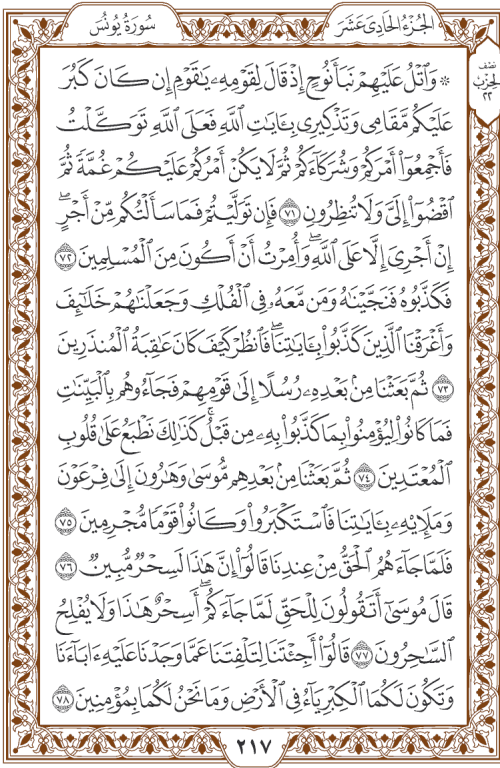 سُورَةُ يُونُسَ
الجُزْءُ الحَادِيَ عَشَرَ
نصْف
الحِزْبُ
٢٢
۞ وَٱتْلُ عَلَيْهِمْ نَبَأَ نُوحٍ إِذْ قَالَ لِقَوْمِهِۦ يَٰقَوْمِ إِن كَانَ كَبُرَ
عَلَيْكُم مَّقَامِي وَتَذْكِيرِي بِـَٔايَٰتِ ٱللَّهِ فَعَلَى ٱللَّهِ تَوَكَّلْتُ
فَأَجْمِعُوٓا۟ أَمْرَكُمْ وَشُرَكَآءَكُمْ ثُمَّ لَا يَكُنْ أَمْرُكُمْ عَلَيْكُمْ غُمَّةً ثُمَّ
ٱقْضُوٓا۟ إِلَيَّ وَلَا تُنظِرُونِ ٧١ فَإِن تَوَلَّيْتُمْ فَمَا سَأَلْتُكُم مِّنْ أَجْرٍ ۖ
إِنْ أَجْرِيَ إِلَّا عَلَى ٱللَّهِ ۖ وَأُمِرْتُ أَنْ أَكُونَ مِنَ ٱلْمُسْلِمِينَ ٧٢
فَكَذَّبُوهُ فَنَجَّيْنَٰهُ وَمَن مَّعَهُۥ فِي ٱلْفُلْكِ وَجَعَلْنَٰهُمْ خَلَٰٓئِفَ
وَأَغْرَقْنَا ٱلَّذِينَ كَذَّبُوا۟ بِـَٔايَٰتِنَا ۖ فَٱنظُرْ كَيْفَ كَانَ عَٰقِبَةُ ٱلْمُنذَرِينَ
٧٣ ثُمَّ بَعَثْنَا مِنۢ بَعْدِهِۦ رُسُلًا إِلَىٰ قَوْمِهِمْ فَجَآءُوهُم بِٱلْبَيِّنَٰتِ
فَمَا كَانُوا۟ لِيُؤْمِنُوا۟ بِمَا كَذَّبُوا۟ بِهِۦ مِن قَبْلُ ۚ كَذَٰلِكَ نَطْبَعُ عَلَىٰ قُلُوبِ
ٱلْمُعْتَدِينَ ٧٤ ثُمَّ بَعَثْنَا مِنۢ بَعْدِهِم مُّوسَىٰ وَهَٰرُونَ إِلَىٰ فِرْعَوْنَ
وَمَلَإِي۟هِۦ بِـَٔايَٰتِنَا فَٱسْتَكْبَرُوا۟ وَكَانُوا۟ قَوْمًا مُّجْرِمِينَ ٧٥
فَلَمَّا جَآءَهُمُ ٱلْحَقُّ مِنْ عِندِنَا قَالُوٓا۟ إِنَّ هَٰذَا لَسِحْرٌ مُّبِينٌ ٧٦
قَالَ مُوسَىٰٓ أَتَقُولُونَ لِلْحَقِّ لَمَّا جَآءَكُمْ ۖ أَسِحْرٌ هَٰذَا وَلَا يُفْلِحُ
ٱلسَّٰحِرُونَ ٧٧ قَالُوٓا۟ أَجِئْتَنَا لِتَلْفِتَنَا عَمَّا وَجَدْنَا عَلَيْهِ ءَابَآءَنَا
وَتَكُونَ لَكُمَا ٱلْكِبْرِيَآءُ فِي ٱلْأَرْضِ وَمَا نَحْنُ لَكُمَا بِمُؤْمِنِينَ ٧٨
٢١٧